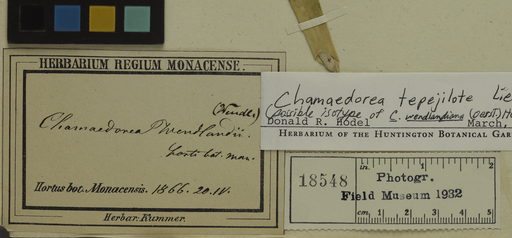 HERBARIUM REGIUM MONACENSE.
(Wendl.)
Chamaedorea Wendlandii.
Horti bot. mon.
Hortus bot. Monacensis. 1866. 20. IV.
Herbar. Kummer.
Chamaedorea tepejilote Lie
(possible isotype of C. wendlandiana (Oerst.) H
Donald R. Hodel March,
HERBARIUM OF THE HUNTINGTON BOTANICAL GAR
in. 1
18548 Photogr.
Field Museum 1932
cm. 1 2 3 4 5